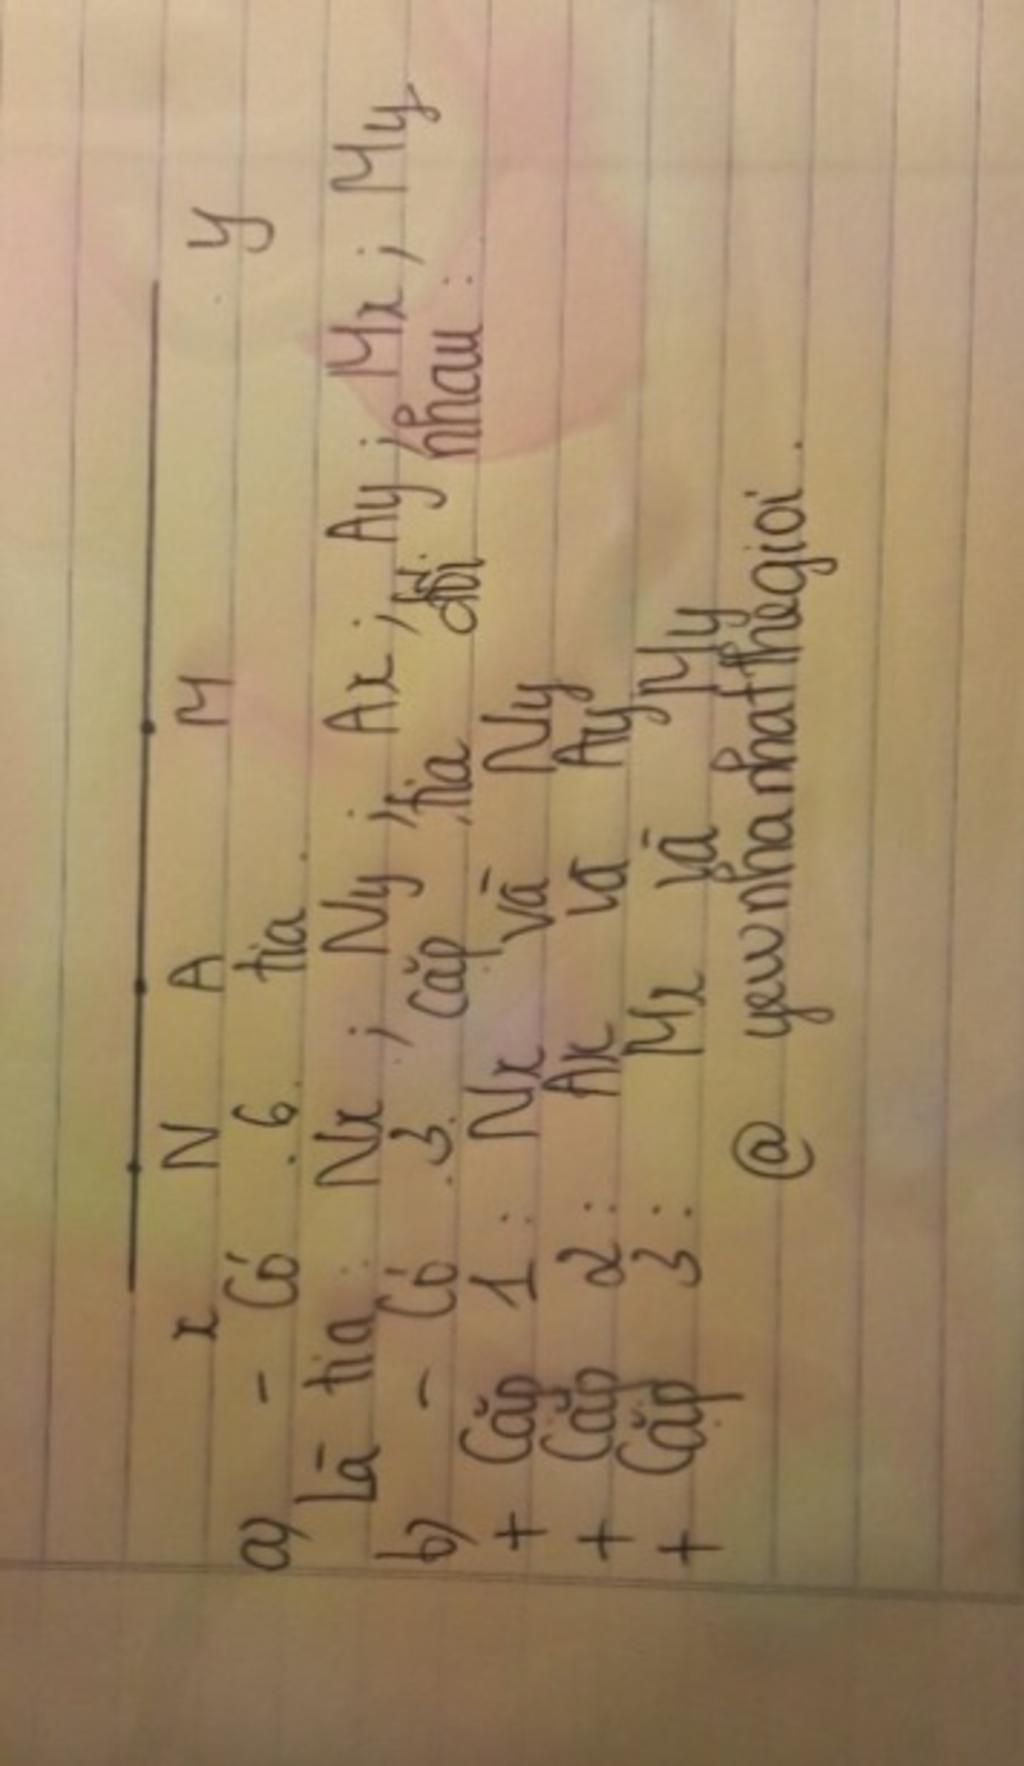 x N A M y
a) - Có 6 tia.
Là tia: Nx; Ny; Ax; Ay; Mx; My
b) - Có 3 cặp tia đối nhau:
+ Cặp 1: Nx và Ny
+ Cặp 2: Ax và Ay
+ Cặp 3: Mx và My
@ yewnhanhatthegioi.